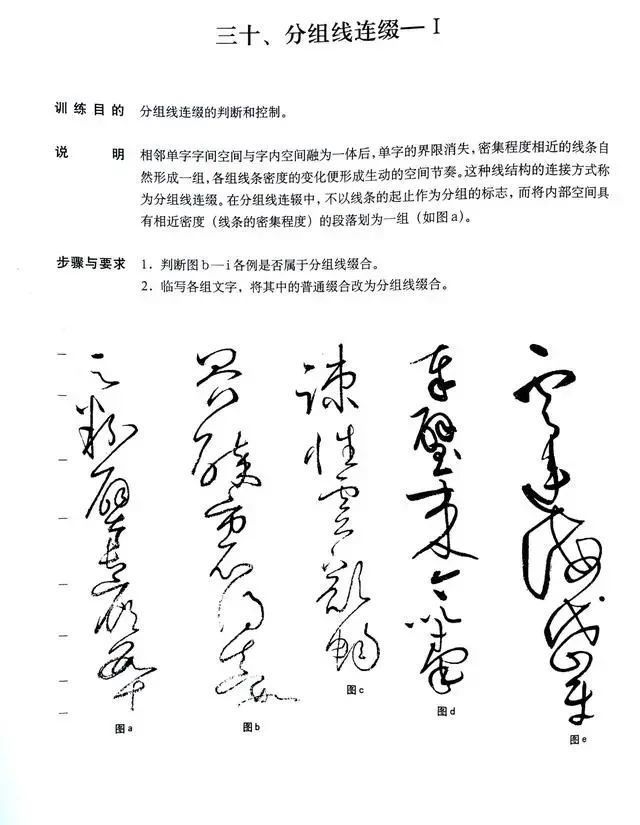 三十、分组线连缀—Ⅰ
训练目的 分组线连缀的判断和控制。
说 明 相邻单字字间空间与字内空间融为一体后，单字的界限消失，密集程度相近的线条自
然形成一组，各组线条密度的变化便形成生动的空间节奏。这种线结构的连接方式称
为分组线连缀。在分组线连辍中，不以线条的起止作为分组的标志，而将内部空间具
有相近密度（线条的密集程度）的段落划为一组（如图a）。
步骤与要求 1．判断图b—i各例是否属于分组线缀合。
2．临写各组文字，将其中的普通缀合改为分组线缀合。
图a
图b
疎性雲歎暢
图c
图d
图e